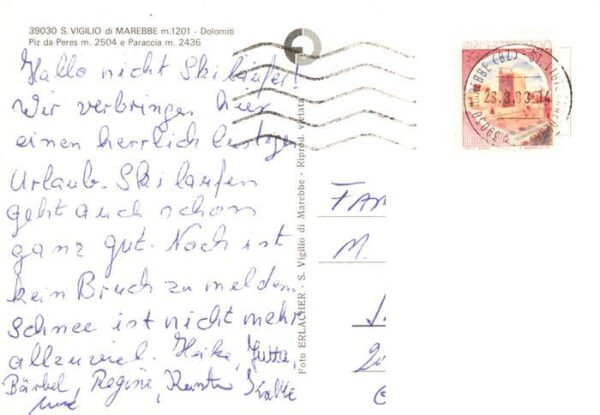 39030 S. VIGILIO di MAREBBE m.1201 - Dolomiti
Piz da Peres m. 2504 e Paraccia m. 2436
Hallo nicht Skiläufer!
Wir verbringen hier
einen herrlich lustigen
Urlaub. Skilaufen
geht auch schon
ganz gut. Noch ist
kein Bruch zu melden
Schnee ist nicht mehr
allzuviel. Heike, Jutta,
Bärbel, Regine,
und
Foto ERLACHER - S. Vigilio di Marebbe - Riprod. vietata
39030 MAREBBE (BZ)
23.3.93.14
FAM
M.